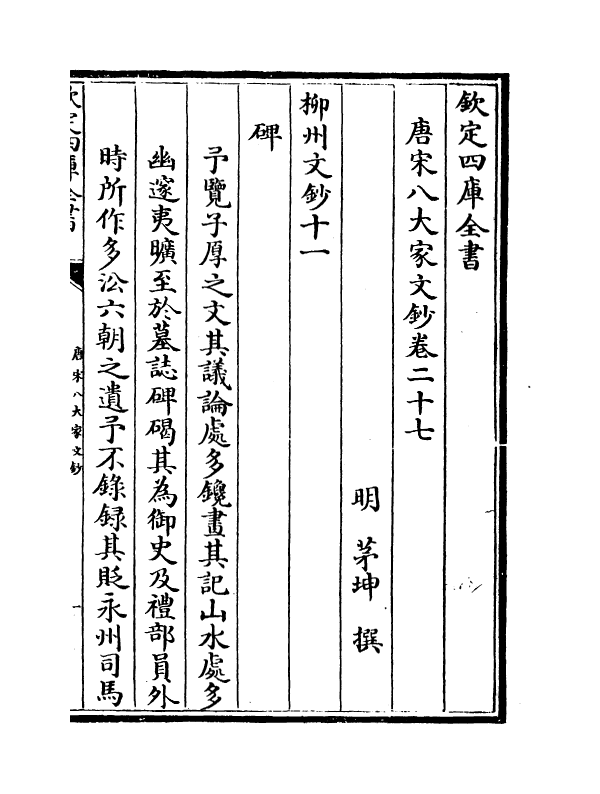 欽定四庫全書
唐宋八大家文鈔卷二十七
明 茅坤 撰
柳州文鈔十一
碑
予覽子厚之文其議論處多鑱畫其記山水處多
幽邃夷曠至於墓誌碑碣其為御史及禮部員外
時所作多沿六朝之遺予不錄録其貶永州司馬
欽定四庫全書
唐宋八大家文鈔
一